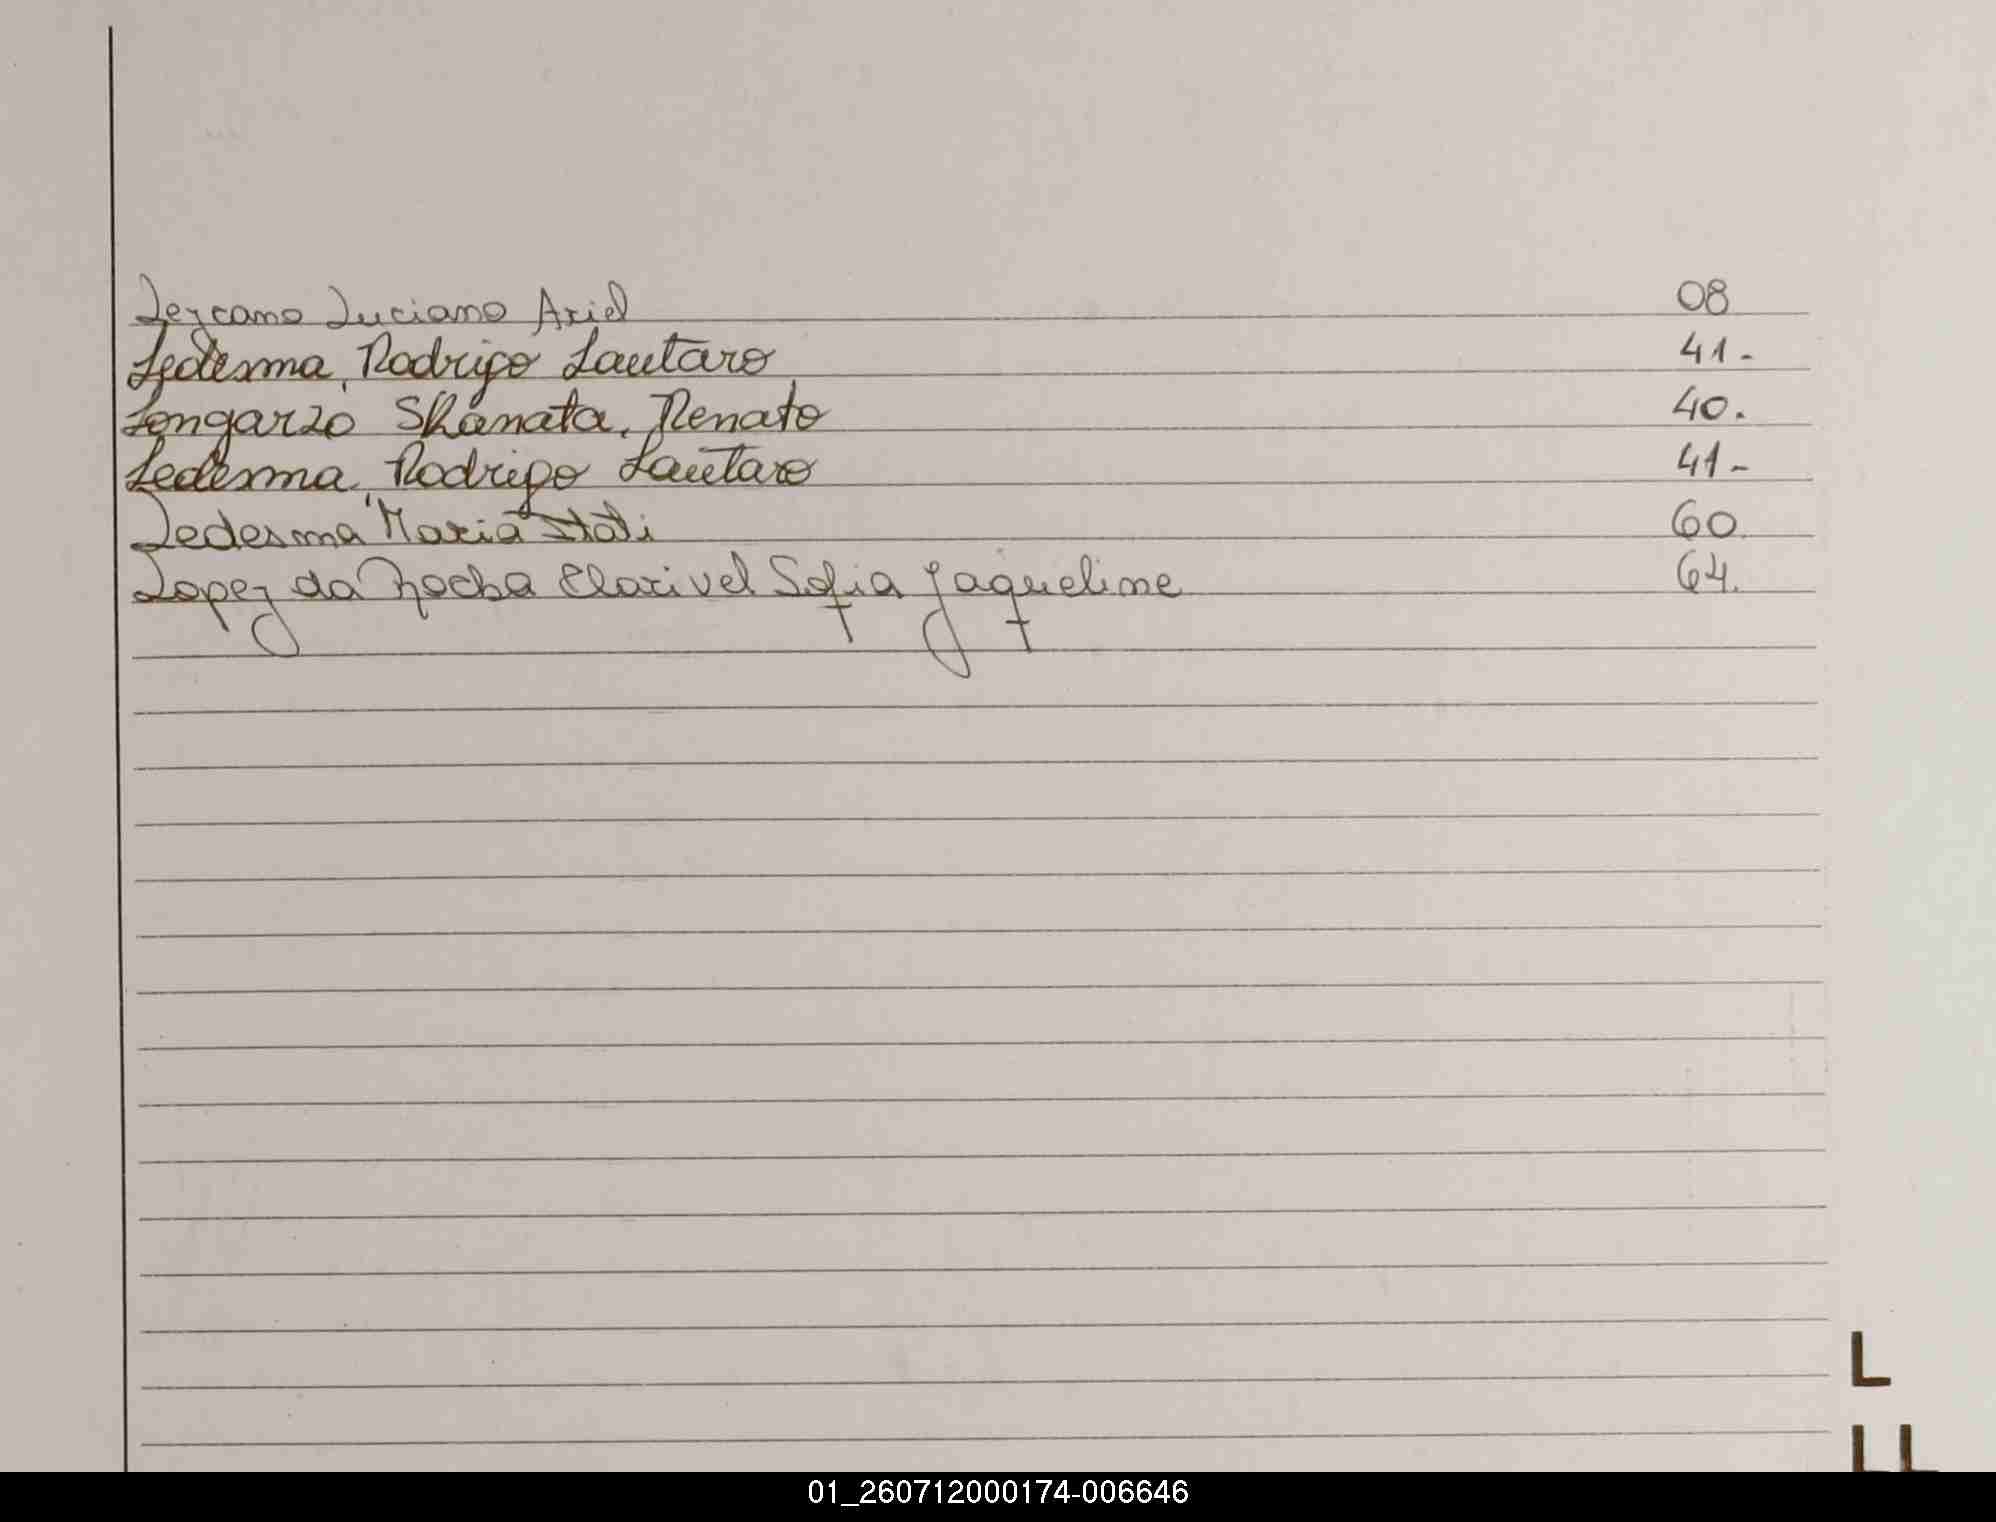 Lezcano Luciano Ariel 08
Ledesma, Rodrigo Lautaro 41-
Longarzo Skanata, Renato 40.
Ledesma, Rodrigo Lautaro 41-
Ledesma Maria Itati 60.
Lopez da Rocha Clarivel Sofia Jaqueline 64.
L
LL
01_260712000174-006646